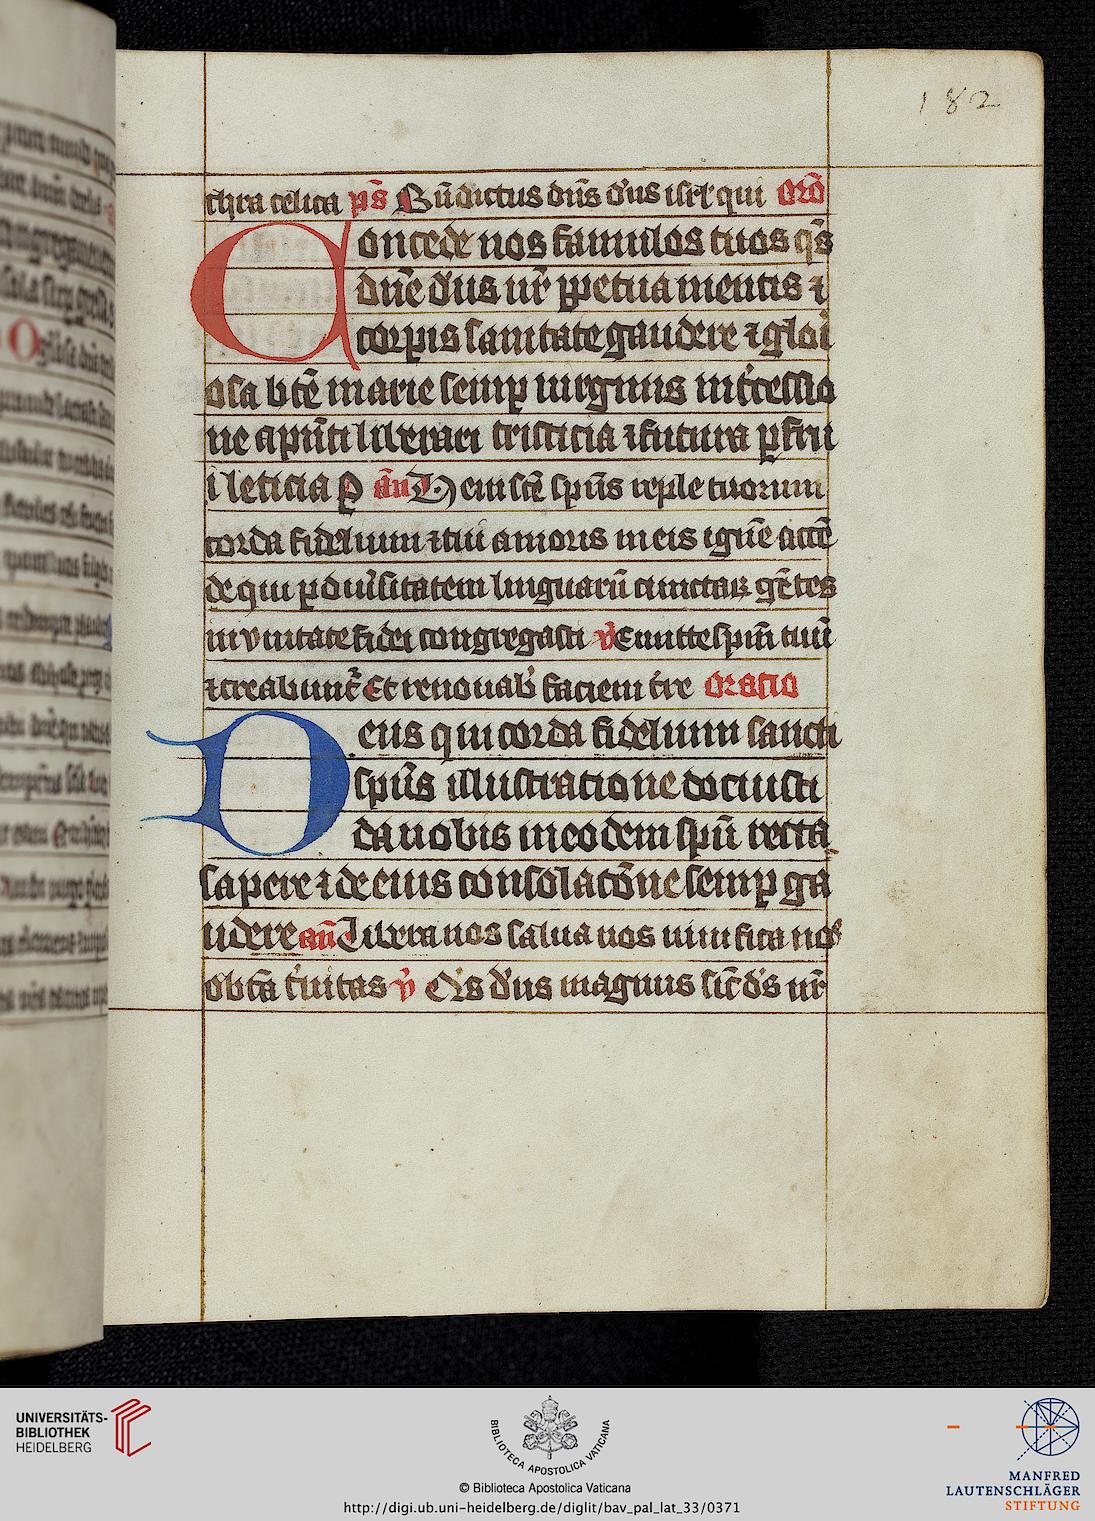 182
thra celica ps̄ Bn̄dictus dn̄s d'us isrl' qui orō
Concede nos famulos tuos qs̄
dn̄e d'us nr̄ ꝑpetua mentis ⁊
corꝑis sanitate gaudere ⁊ gloi
osa btē marie semꝑ uirginis int'cessio
ne a pn̄ti liberari tristicia ⁊ futura ꝑfrui
i leticia ꝑ an̄ Veni scē sp̄us reple tuorum
corda fidelium ⁊ tui amoris in eis ignē accē
de qui ꝑ diu'sitatem linguarū cunctaꝝ gētes
in vnitate fidei congregasti v̓ Emitte sp̄m tuū
⁊ creabunt' Et renouab' faciem t're oratio
Deus qui corda fidelium sancti
sp̄us illustratione docuisti
da nobis in eodem sp̄u recta
sapere ⁊ de eius consolacōne semꝑ ga
udere an̄ Libera nos salua nos uiuifica nos
o btā t'nitas v̓ Q's d'us magnus sic̄ d's nr̄
UNIVERSITÄTS-
BIBLIOTHEK
HEIDELBERG
BIBLIOTECA APOSTOLICA VATICANA
© Biblioteca Apostolica Vaticana
http://digi.ub.uni-heidelberg.de/diglit/bav_pal_lat_33/0371
MANFRED
LAUTENSCHLÄGER
STIFTUNG